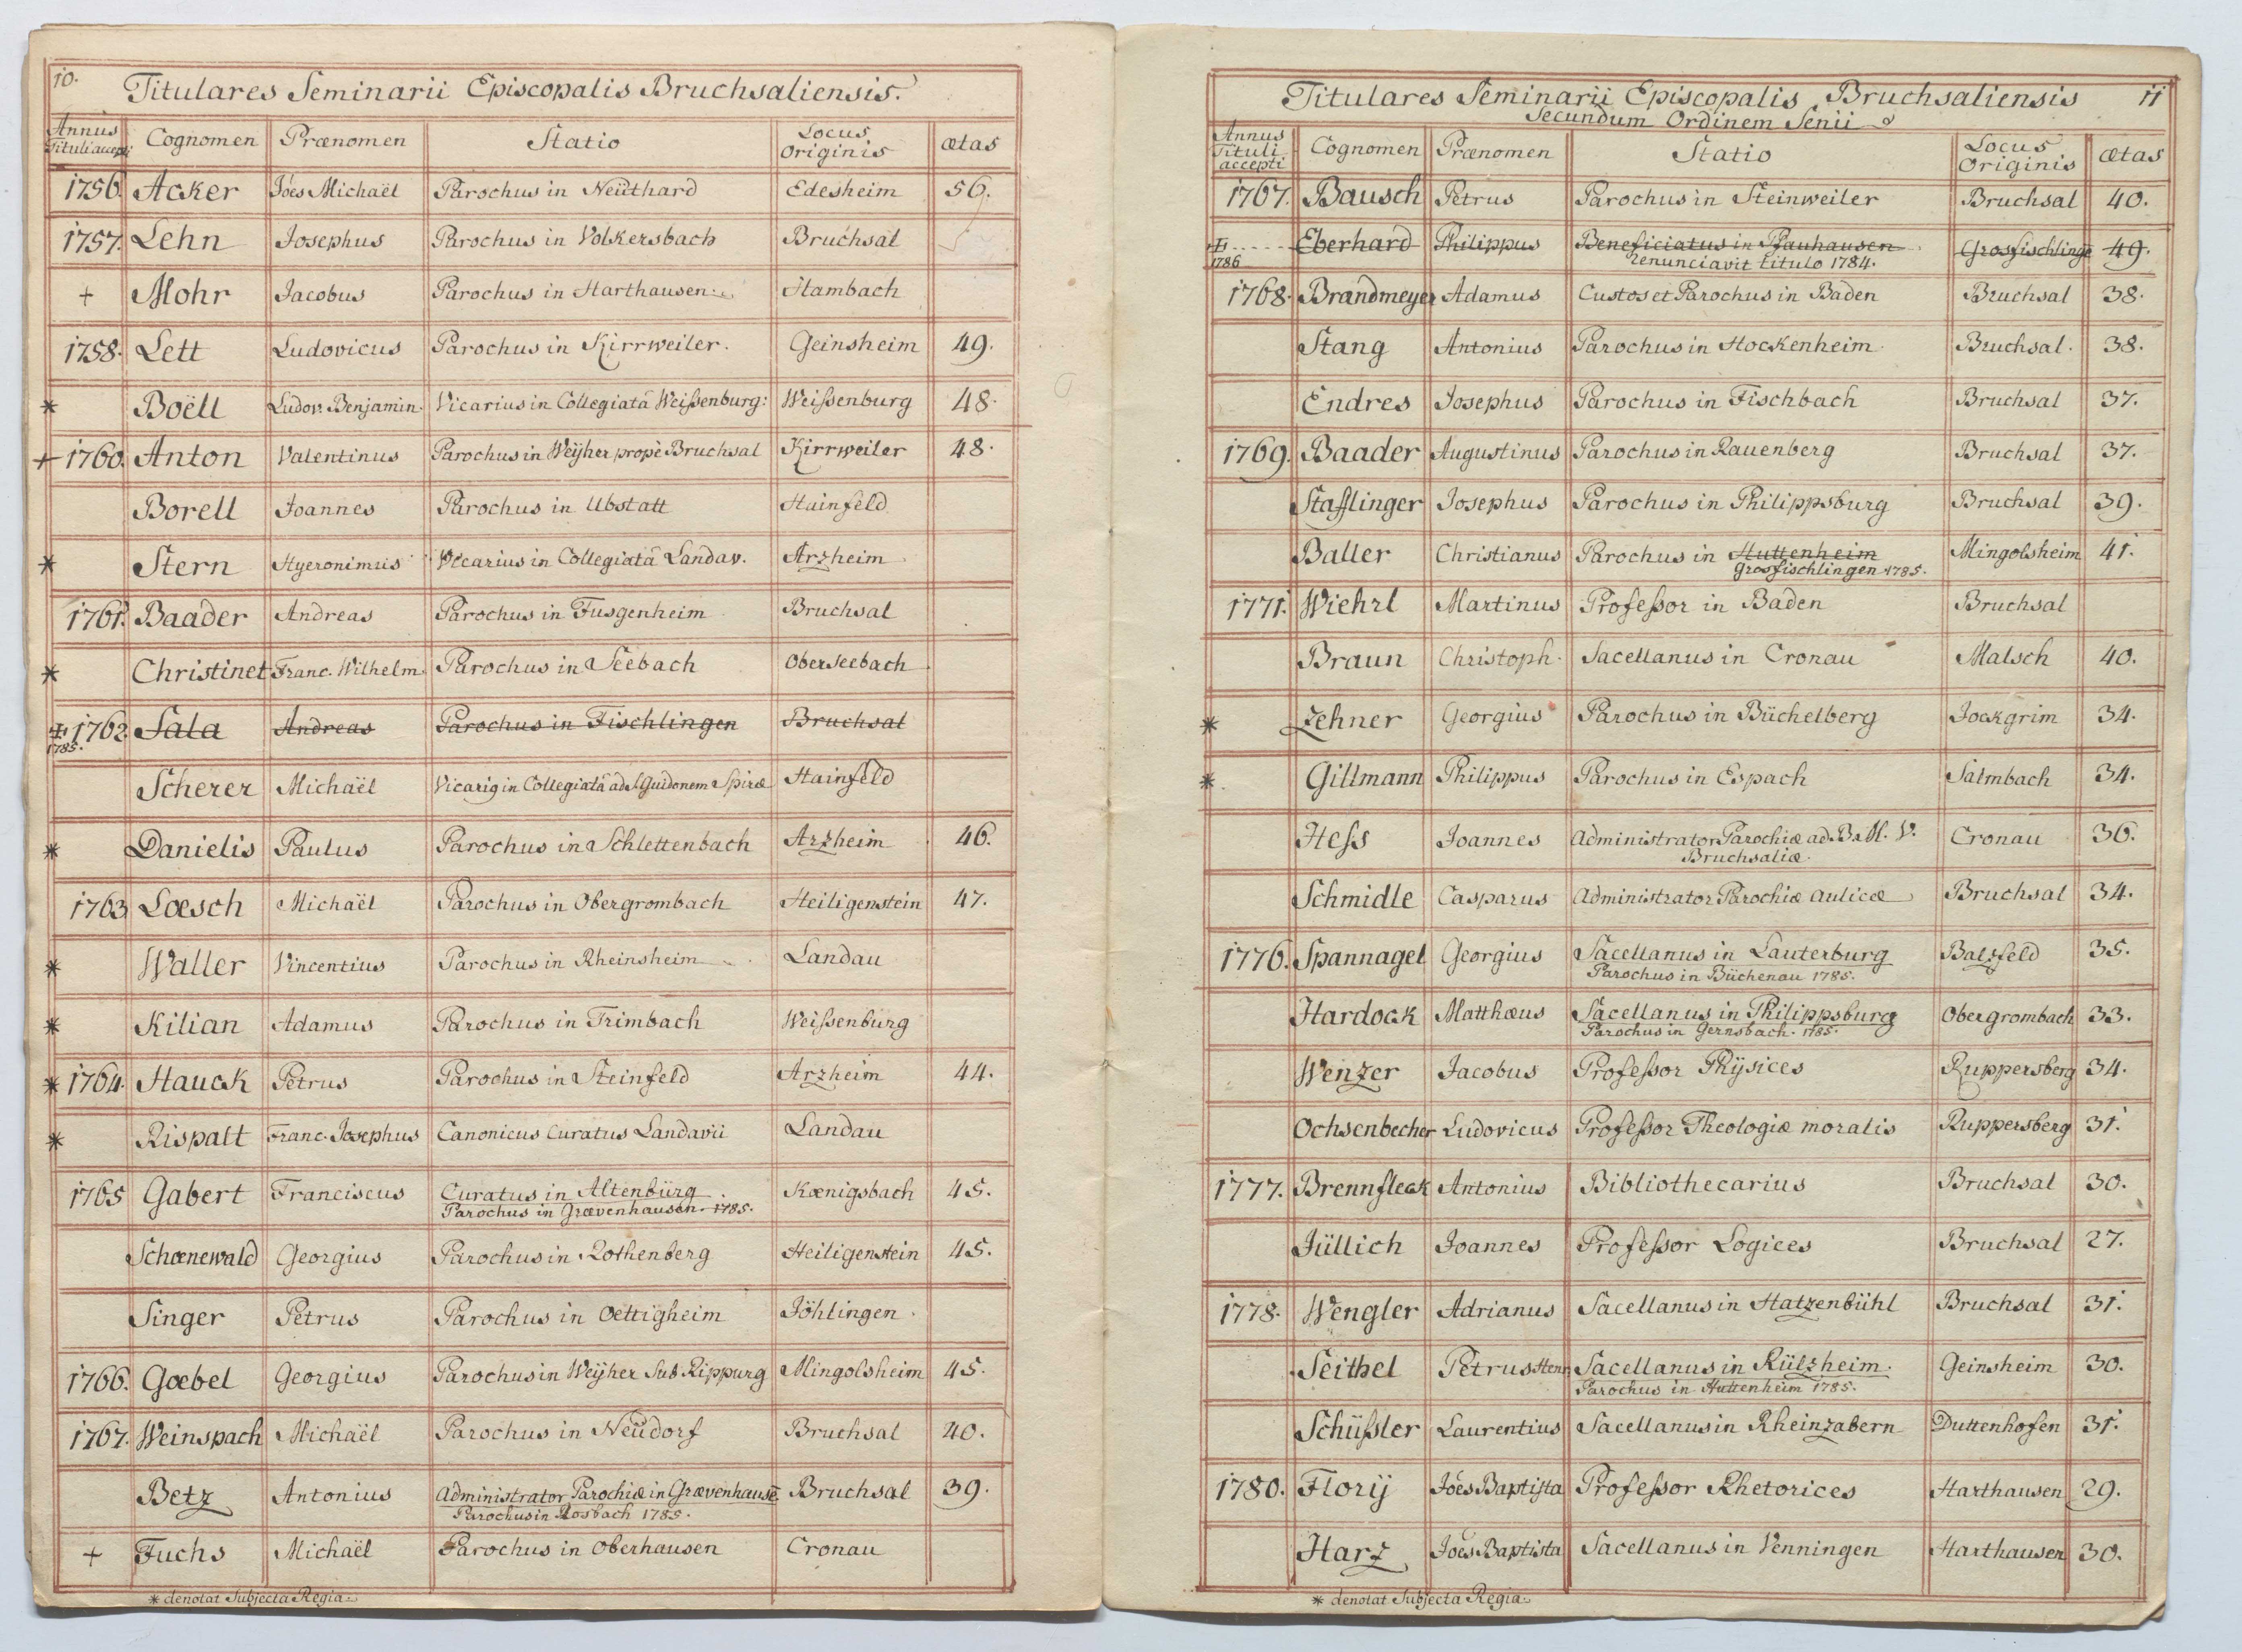 10. Titulares Seminarii Episcopalis Bruchsaliensis.
Annus Tituli accepti Cognomen Prænomen Statio Locus Originis ætas
1756. Acker Joës Michaël Parochus in Neüthard Edesheim 56.
1757. Lehn Josephus Parochus in Volkersbach Bruchsal
+ Mohr Jacobus Parochus in Harthausen Hambach
1758. Lett Ludovicus Parochus in Kirrweiler. Geinsheim 49.
* Boëll Ludov. Benjamin. Vicarius in Collegiatâ Weißenburg: Weißenburg 48.
+ 1760. Anton Valentinus Parochus in Weÿher propè Bruchsal Kirrweiler 48.
Borell Joannes Parochus in Ubstatt Hainfeld
* Stern Hyeronimus Vicarius in Collegiatâ Landav. Arzheim
1761. Baader Andreas Parochus in Fusgenheim Bruchsal
* Christinet Franc. Wilhelm. Parochus in Seebach Oberseebach
+ 1762. Sala Andreas Parochus in Fischlingen Bruchsal
1785.
Scherer Michaël Vicari9 in Collegiatâ ad S. Guidonem Spiræ Hainfeld
* Danielis Paulus Parochus in Schlettenbach Arzheim 46.
1763 Lœsch Michaël Parochus in Obergrombach Heiligenstein 47.
* Waller Vincentius Parochus in Rheinsheim Landau
* Kilian Adamus Parochus in Trimbach Weißenburg
* 1764. Hauck Petrus Parochus in Steinfeld Arzheim 44.
* Rispalt Franc. Josephus Canonicus Curatus Landavii Landau
1765 Gabert Franciscus Curatus in Altenbürg Kœnigsbach 45.
Parochus in Grævenhausen. 1785.
Schœnewald Georgius Parochus in Rothenberg Heiligenstein 45.
Singer Petrus Parochus in Oettigheim Jöhlingen.
1766. Gœbel Georgius Parochus in Weÿher Sub Rippurg Mingolsheim 45.
1767. Weinspach Michaël Parochus in Neüdorf Bruchsal 40.
Betz Antonius Administrator Parochiæ in Grævenhausē Bruchsal 39.
Parochus in Rosbach 1785.
+ Fuchs Michaël Parochus in Oberhausen Cronau
* denotat Subjecta Regia.
Titulares Seminarii Episcopalis Bruchsaliensis 11
Secundum Ordinem Senii
Annus Tituli accepti Cognomen Prænomen Statio Locus Originis ætas
1767. Bausch Petrus Parochus in Steinweiler Bruchsal 40.
+ Eberhard Philippus Beneficiatus in Pfauhausen Grosfischlingē 49.
1786 renunciavit titulo 1784.
1768. Brandmeyer Adamus Custos et Parochus in Baden Bruchsal 38.
Stang Antonius Parochus in Hockenheim Bruchsal. 38.
Endres Josephus Parochus in Fischbach Bruchsal 37.
1769. Baader Augustinus Parochus in Rauenberg Bruchsal 37.
Stafflinger Josephus Parochus in Philippsburg Bruchsal 39.
Baller Christianus Parochus in Huttenheim Mingolsheim 41.
Grosfischlingen 1785.
1771. Wiehrl Martinus Profeßor in Baden Bruchsal
Braun Christoph. Sacellanus in Cronau Malsch 40.
* Zehner Georgius Parochus in Büchelberg Jockgrim 34.
* Gillmann Philippus Parochus in Espach Salmbach 34.
Heß Joannes Administrator Parochiæ ad B. M. V. Cronau 36.
Bruchsaliæ.
Schmidle Casparus Administrator Parochiæ aulicæ Bruchsal 34.
1776. Spannagel Georgius Sacellanus in Lauterburg Balzfeld 35.
Parochus in Büchenau 1785.
Hardock Matthæus Sacellanus in Philippsburg Obergrombach 33.
Parochus in Gernsbach. 1785.
Wenzer Jacobus Profeßor Phÿsices Ruppersberg 34.
Ochsenbecher Ludovicus Profeßor Theologiæ moralis Ruppersberg 31.
1777. Brennfleck Antonius Bibliothecarius Bruchsal 30.
Jüllich Joannes Profeßor Logices Bruchsal 27.
1778. Wengler Adrianus Sacellanus in Hatzenbühl Bruchsal 31.
Seithel Petrus Henr. Sacellanus in Rülzheim. Geinsheim 30.
Parochus in Huttenheim 1785.
Schüßler Laurentius Sacellanus in Rheinzabern Duttenhofen 31.
1780. Florÿ Joës Baptista Profeßor Rhetorices Harthausen 29.
Harz Joës Baptista Sacellanus in Venningen Harthausen 30.
* denotat Subjecta Regia.